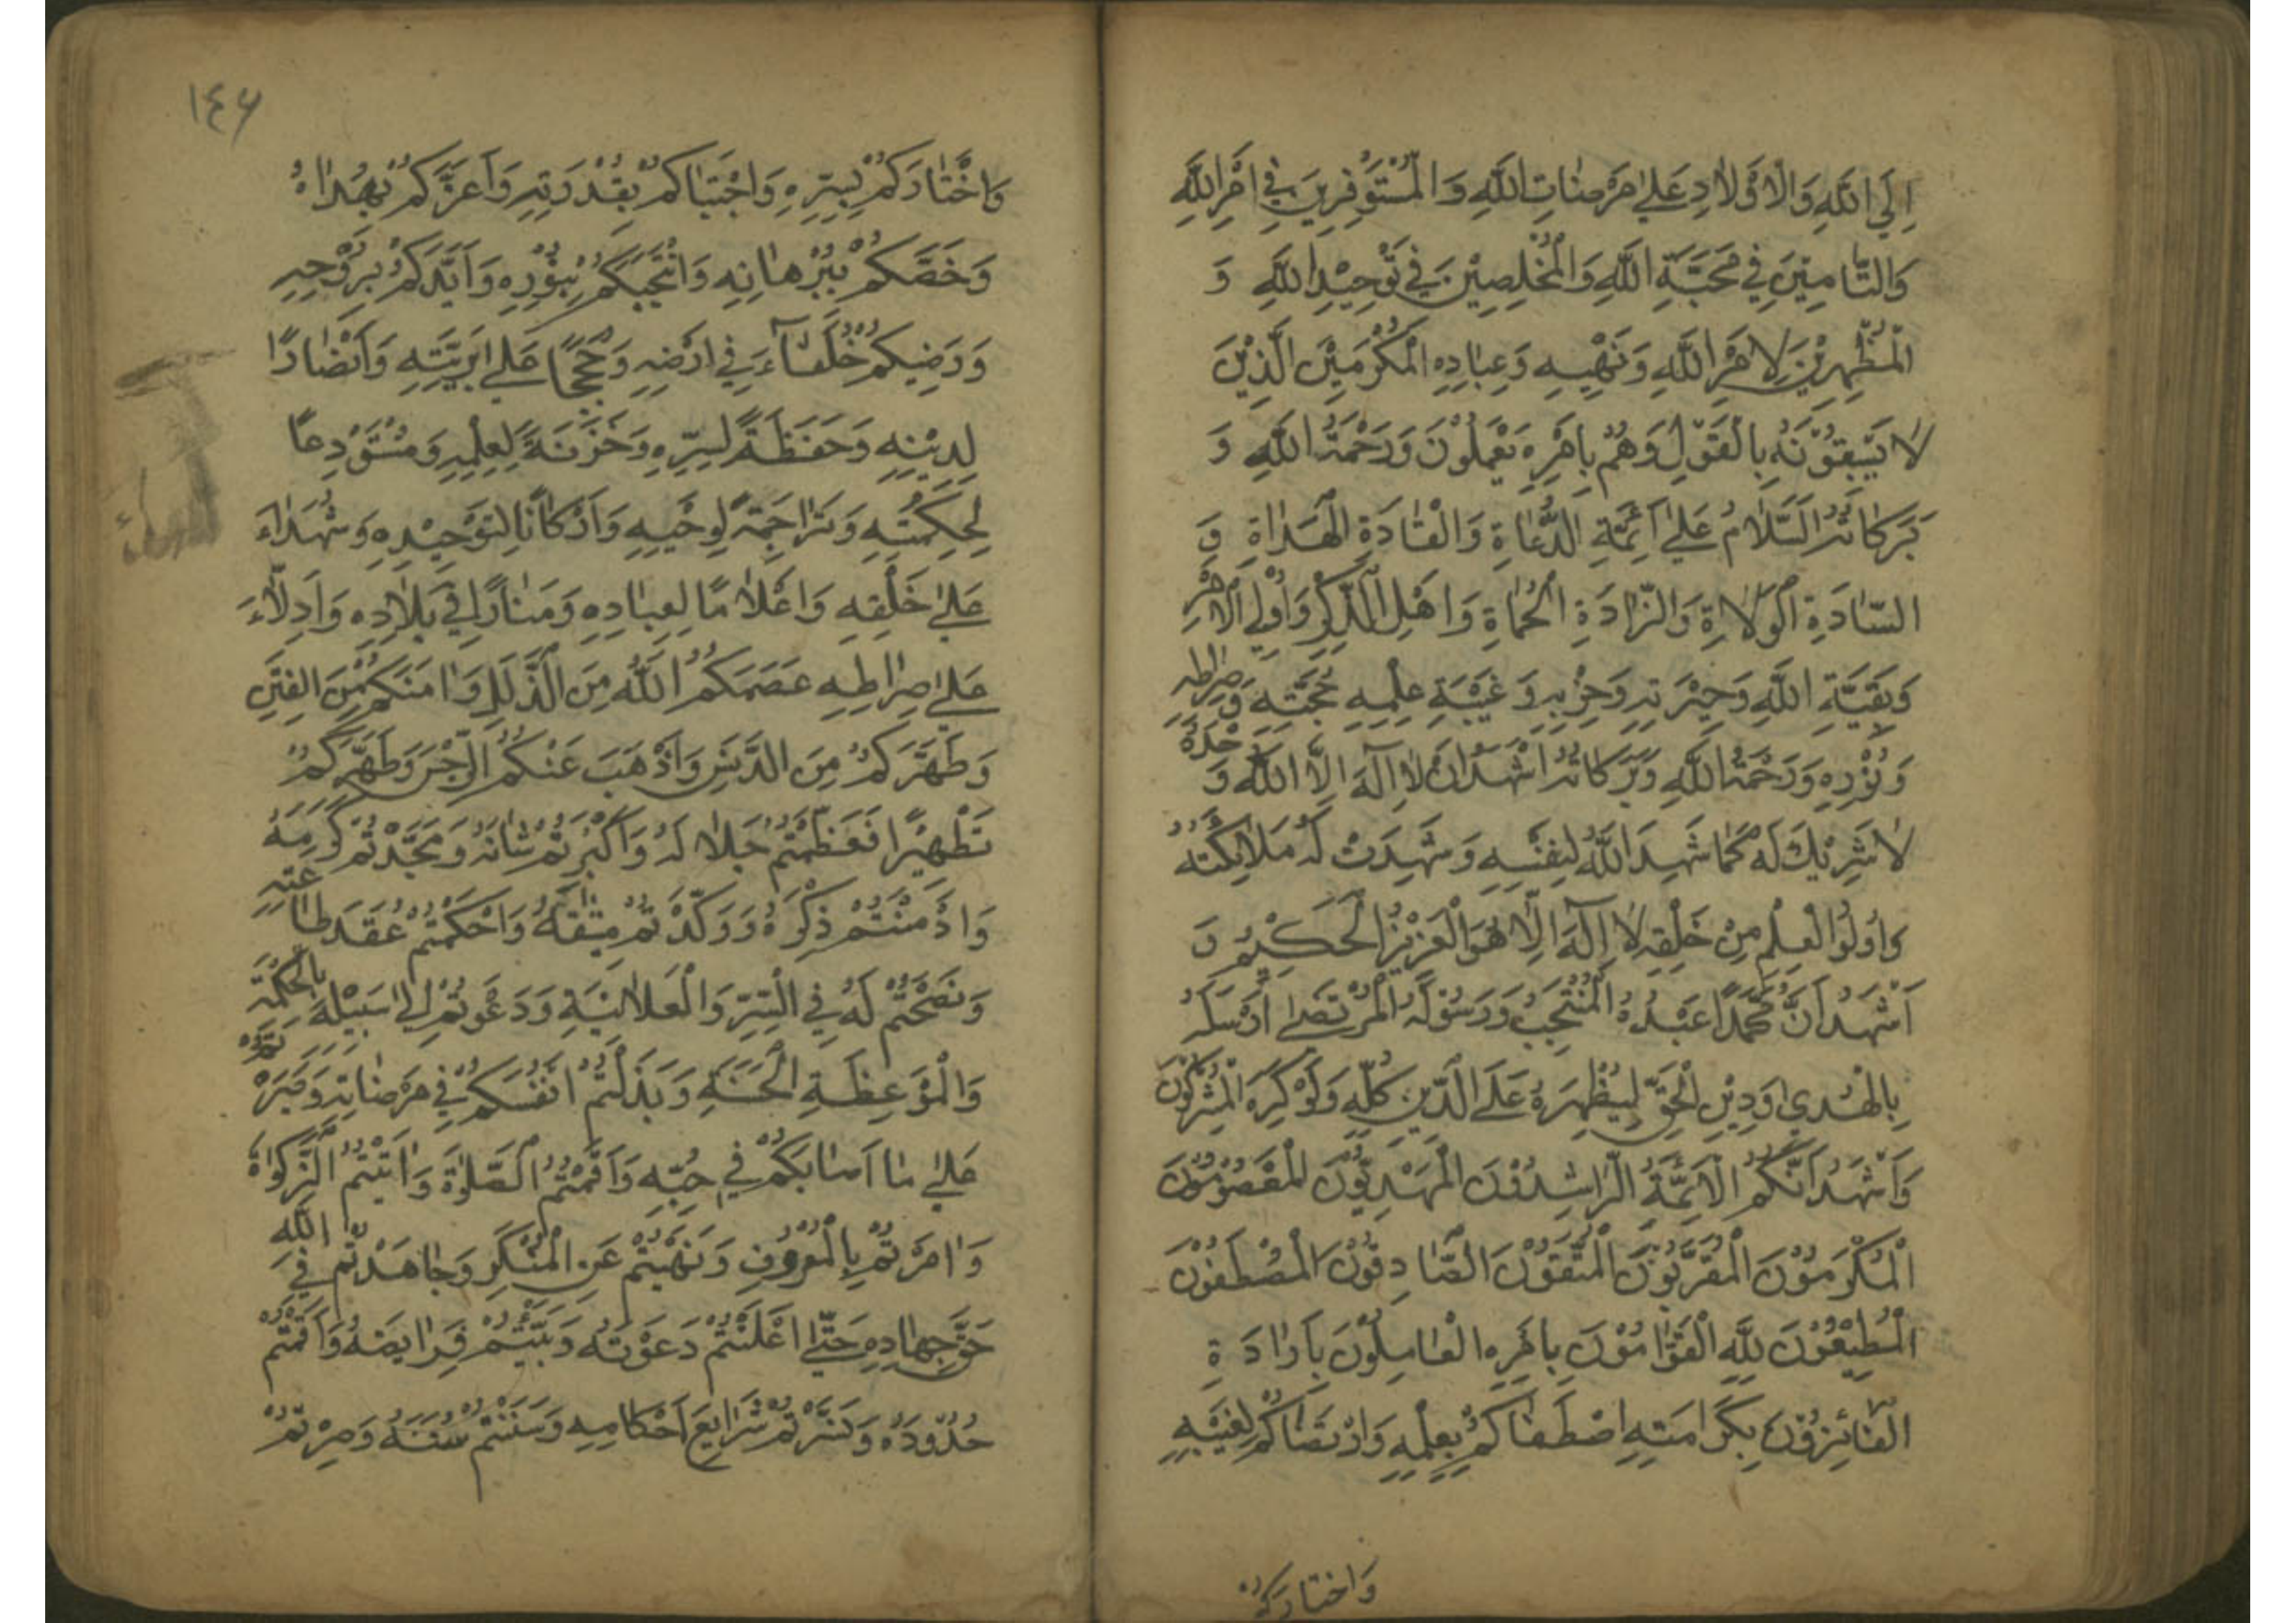 اِلَى اللّٰهِ وَالْاَوْلَادِ عَلٰى مَرْضَاتِ اللّٰهِ وَالْمُسْتَوْفِرِيْنَ فِي اَمْرِ اللّٰهِ
وَالتَّامِيْنَ فِي مَحَبَّةِ اللّٰهِ وَالْمُخْلِصِيْنَ فِي تَوْحِيْدِ اللّٰهِ وَ
الْمُظْهِرِيْنَ لِاَمْرِ اللّٰهِ وَنَهْيِهِ وَعِبَادِهِ الْمُكْرَمِيْنَ الَّذِيْنَ
لَا يَسْبِقُوْنَهُ بِالْقَوْلِ وَهُمْ بِاَمْرِهِ يَعْمَلُوْنَ وَرَحْمَةُ اللّٰهِ وَ
بَرَكَاتُهُ اَلسَّلَامُ عَلٰى اَئِمَّةِ الدُّعَاةِ وَالْقَادَةِ الْهُدَاةِ وَ
السَّادَةِ الْوُلَاةِ وَالذَّادَةِ الْحُمَاةِ وَاَهْلِ الذِّكْرِ وَاُولِي الْاَمْرِ
وَبَقِيَّةِ اللّٰهِ وَخِيَرَتِهِ وَحِزْبِهِ وَغَيْبَةِ عِلْمِهِ حُجَّتِهِ وَصِرَاطِهِ
وَنُوْرِهِ وَرَحْمَةُ اللّٰهِ وَبَرَكَاتُهُ اَشْهَدُ اَنْ لَا اِلٰهَ اِلَّا اللّٰهُ وَحْدَهُ
لَا شَرِيْكَ لَهُ كَمَا شَهِدَ اللّٰهُ لِنَفْسِهِ وَشَهِدَتْ لَهُ مَلَائِكَتُهُ
وَاُولُو الْعِلْمِ مِنْ خَلْقِهِ لَا اِلٰهَ اِلَّا هُوَ الْعَزِيْزُ الْحَكِيْمُ وَ
اَشْهَدُ اَنَّ مُحَمَّدًا عَبْدُهُ الْمُنْتَجَبُ وَرَسُوْلُهُ الْمُرْتَضٰى اَرْسَلَهُ
بِالْهُدٰى وَدِيْنِ الْحَقِّ لِيُظْهِرَهُ عَلَى الدِّيْنِ كُلِّهِ وَلَوْ كَرِهَ الْمُشْرِكُوْنَ
وَاَشْهَدُ اَنَّكُمُ الْاَئِمَّةُ الرَّاشِدُوْنَ الْمَهْدِيُّوْنَ الْمَعْصُوْمُوْنَ
الْمُكْرَمُوْنَ الْمُقَرَّبُوْنَ الْمُتَّقُوْنَ الصَّادِقُوْنَ الْمُصْطَفَوْنَ
الْمُطِيْعُوْنَ لِلّٰهِ الْقَوَّامُوْنَ بِاَمْرِهِ الْعَامِلُوْنَ بِاَرَادَةِ
الْفَائِزُوْنَ بِكَرَامَتِهِ اصْطَفَاكُمْ بِعِلْمِهِ وَارْتَضَاكُمْ لِغَيْبِهِ
وَاخْتَارَكُمْ
١٤٦
وَاخْتَارَكُمْ بِسِرِّهِ وَاجْتَبَاكُمْ بِقُدْرَتِهِ وَاَعَزَّكُمْ بِهُدَاهُ
وَخَصَّكُمْ بِبُرْهَانِهِ وَانْتَجَبَكُمْ بِنُوْرِهِ وَاَيَّدَكُمْ بِرُوْحِهِ
وَرَضِيَكُمْ خُلَفَاءَ فِي اَرْضِهِ وَحُجَجًا عَلٰى بَرِيَّتِهِ وَاَنْصَارًا
لِدِيْنِهِ وَحَفَظَةً لِسِرِّهِ وَخَزَنَةً لِعِلْمِهِ وَمُسْتَوْدِعًا
لِحِكْمَتِهِ وَتَرَاجِمَةً لِوَحْيِهِ وَاَرْكَانًا لِتَوْحِيْدِهِ وَشُهَدَاءَ
عَلٰى خَلْقِهِ وَاَعْلَامًا لِعِبَادِهِ وَمَنَارًا فِي بِلَادِهِ وَاَدِلَّاءَ
عَلٰى صِرَاطِهِ عَصَمَكُمُ اللّٰهُ مِنَ الذَّلَلِ وَاٰمَنَكُمْ مِنَ الْفِتَنِ
وَطَهَّرَكُمْ مِنَ الدَّنَسِ وَاَذْهَبَ عَنْكُمُ الرِّجْسَ وَطَهَّرَكُمْ
تَطْهِيْرًا فَعَظَّمْتُمْ جَلَالَهُ وَاَكْبَرْتُمْ شَانَهُ وَمَجَّدْتُمْ كَرَمَهُ
وَاَدْمَنْتُمْ ذِكْرَهُ وَوَكَّدْتُمْ مِيْثٰقَهُ وَاَحْكَمْتُمْ عَقْدَ طَاعَتِهِ
وَنَصَحْتُمْ لَهُ فِي السِّرِّ وَالْعَلَانِيَةِ وَدَعَوْتُمْ اِلٰى سَبِيْلِهِ بِالْحِكْمَةِ
وَالْمَوْعِظَةِ الْحَسَنَةِ وَبَذَلْتُمْ اَنْفُسَكُمْ فِي مَرْضَاتِهِ وَصَبَرْتُمْ
عَلٰى مَا اَصَابَكُمْ فِي حُبِّهِ وَاَقَمْتُمُ الصَّلٰوةَ وَاٰتَيْتُمُ الزَّكٰوةَ
وَاَمَرْتُمْ بِالْمَعْرُوْفِ وَنَهَيْتُمْ عَنِ الْمُنْكَرِ وَجَاهَدْتُمْ فِي اللّٰهِ
حَقَّ جِهَادِهِ حَتّٰى اَعْلَنْتُمْ دَعْوَتَهُ وَبَيَّنْتُمْ فَرَايِضَهُ وَاَقَمْتُمْ
حُدُوْدَهُ وَنَشَرْتُمْ شَرَايِعَ اَحْكَامِهِ وَسَنَنْتُمْ سُنَنَهُ وَصِرْتُمْ